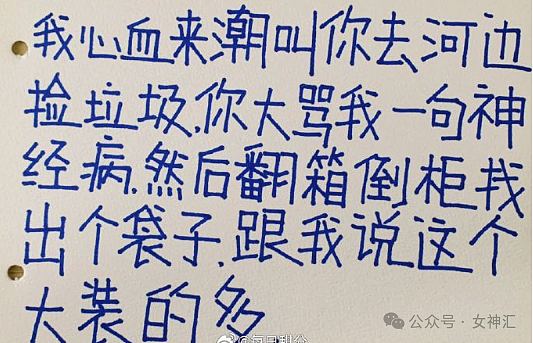 我心血来潮叫你去河边
捡垃圾,你大骂我一句神
经病,然后翻箱倒柜找
出个袋子,跟我说这个
大装的多
公众号·女神汇